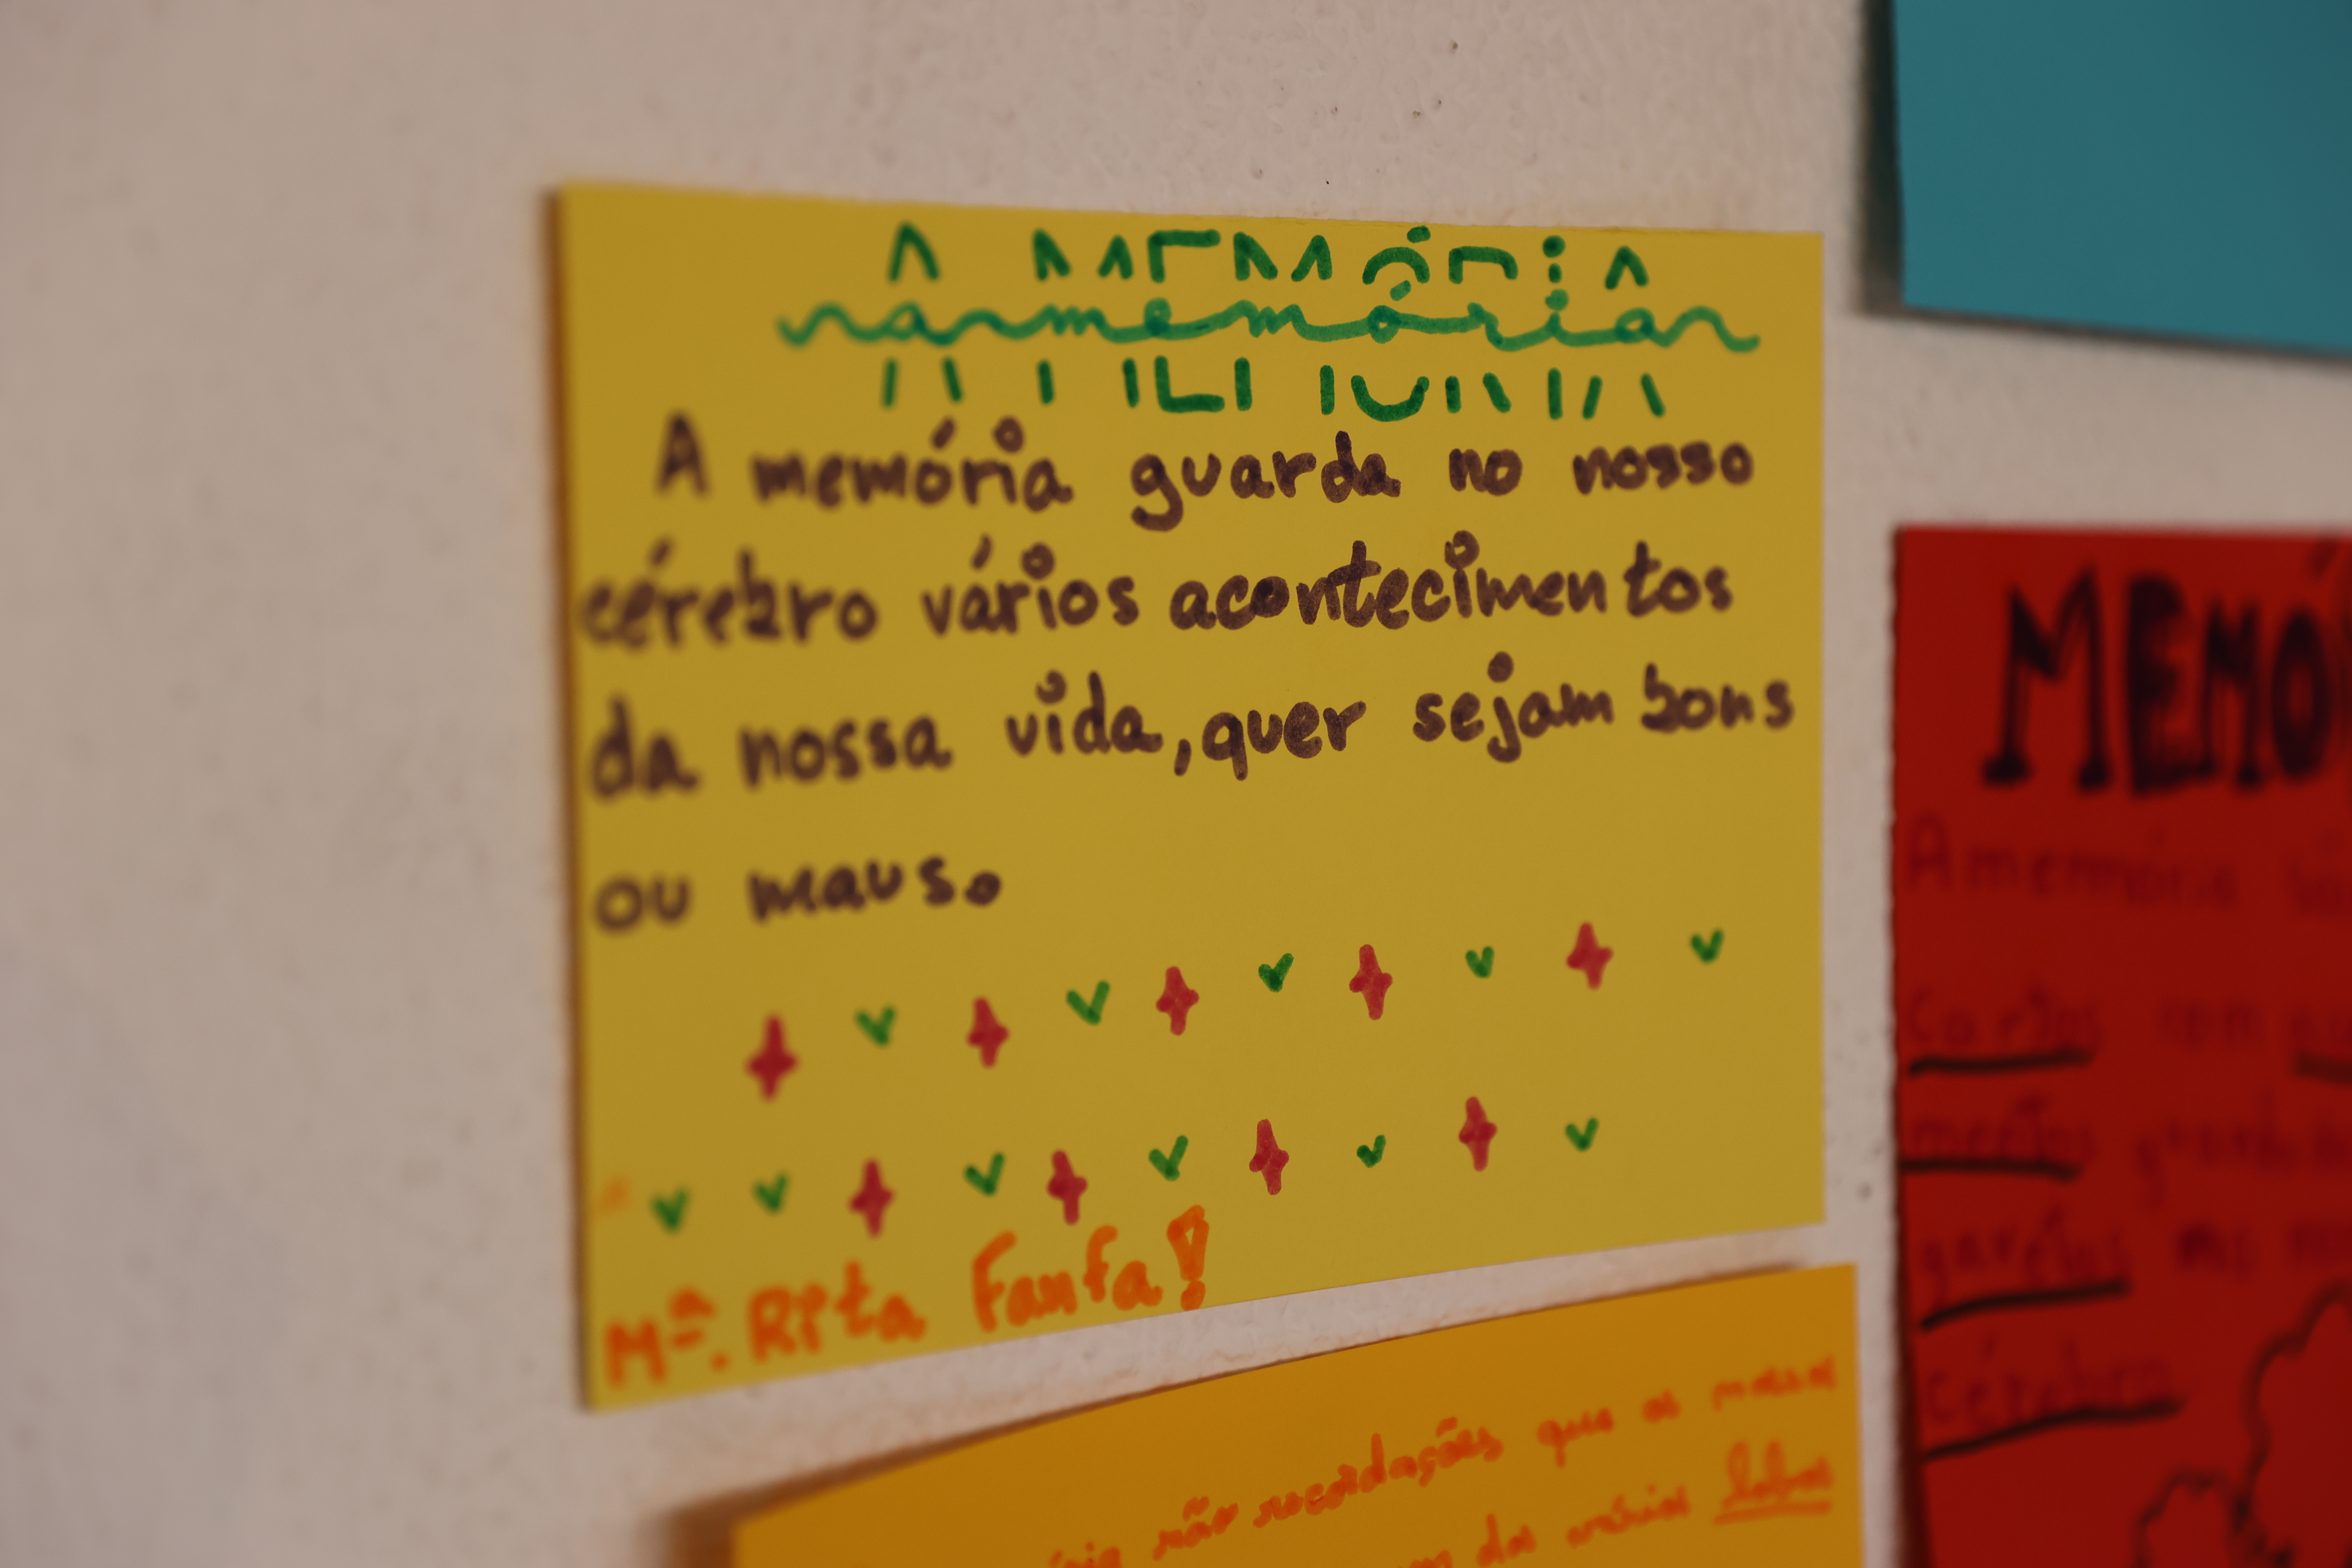 A MEMÓRIA
a memória
A memória guarda no nosso
cérebro vários acontecimentos
da nossa vida, quer sejam bons
ou maus.
Mª. Rita Fanfa!
MEMÓ
A memória
Cortos com
cérebro
não recordações que os nossa
das vários lobos